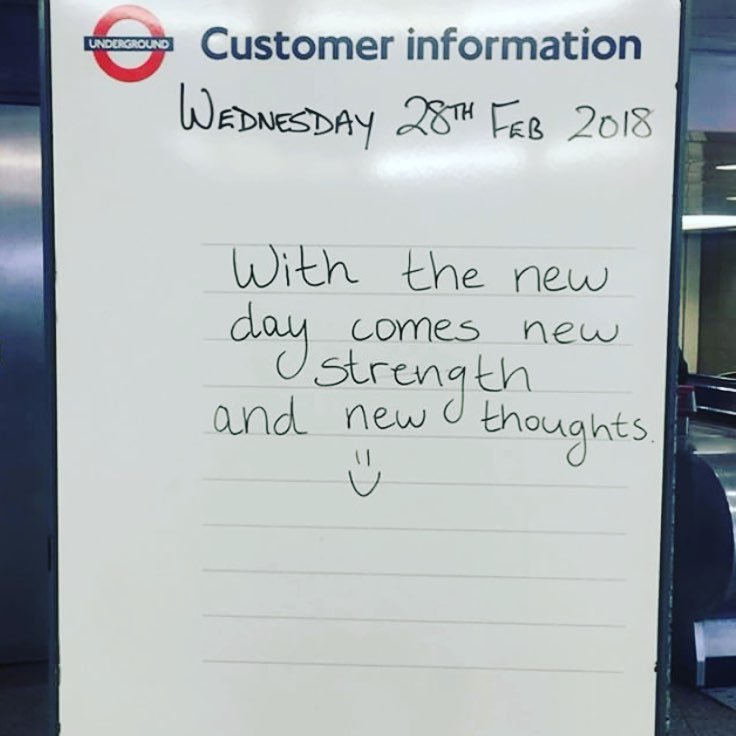 UNDERGROUND
Customer information
WEDNESDAY 28TH FEB 2018
With the new
day comes new
strength
and new thoughts.